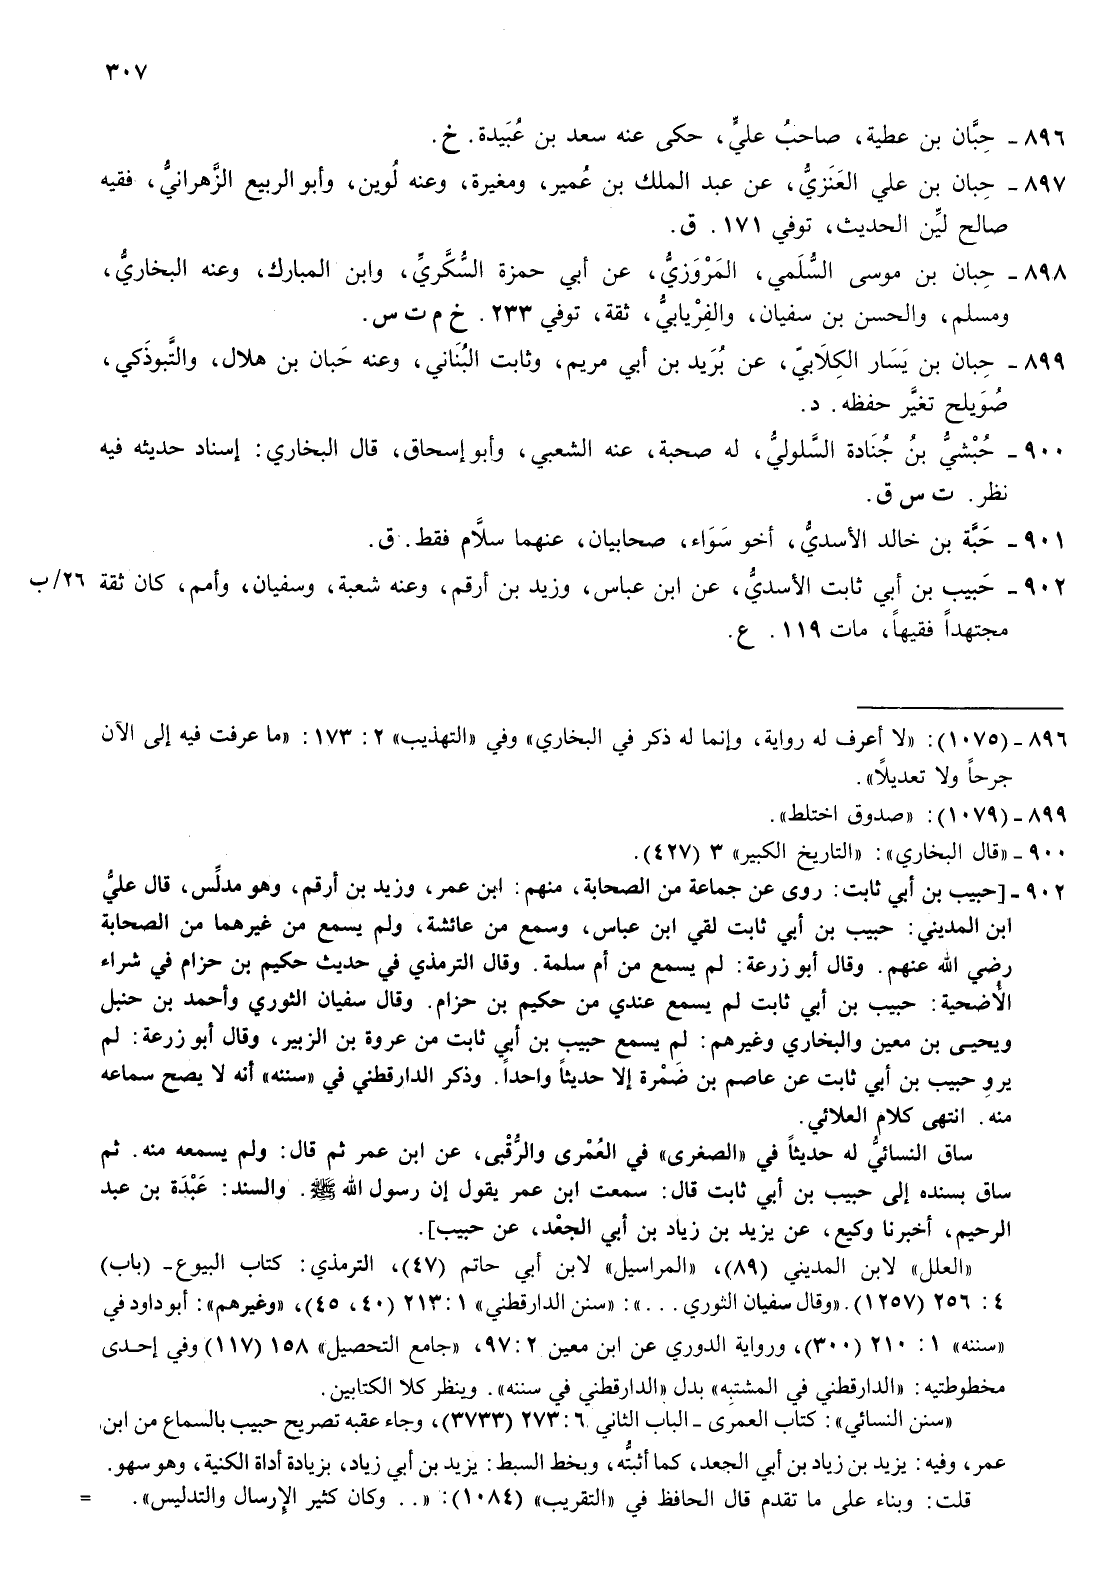 ٣٠٧
٨٩٦ - حِبَّان بن عطية، صاحبُ عليٍّ، حكى عنه سعد بن عُبَيدة. خ.
٨٩٧ - حِبان بن علي العَنَزيُّ، عن عبد الملك بن عُمير، ومغيرة، وعنه لُوين، وأبو الربيع الزَّهرانيُّ، فقيه
صالح ليِّن الحديث، توفي ١٧١. ق.
٨٩٨ - حِبان بن موسى السُّلَمي، المَرْوَزيُّ، عن أبي حمزة السُّكَّريِّ، وابن المبارك، وعنه البخاريُّ،
ومسلم، والحسن بن سفيان، والفِرْيابيُّ، ثقة، توفي ٢٣٣. خ م ت س.
٨٩٩ - حِبان بن يَسَار الكِلَابيّ، عن بُرَيد بن أبي مريم، وثابت البُنَاني، وعنه حَبان بن هلال، والتَّبوذَكي،
صُوَيلح تغيَّر حفظه. د.
٩٠٠ - حُبْشيُّ بنُ جُنَادة السَّلوليُّ، له صحبة، عنه الشعبي، وأبو إسحاق، قال البخاري: إسناد حديثه فيه
نظر. ت س ق.
٩٠١ - حَبَّة بن خالد الأسديُّ، أخو سَوَاء، صحابيان، عنهما سلَّام فقط. ق.
٩٠٢ - حَبيب بن أبي ثابت الأسديُّ، عن ابن عباس، وزيد بن أرقم، وعنه شعبة، وسفيان، وأمم، كان ثقة ٢٦/ب
مجتهداً فقيهاً، مات ١١٩. ع.
٨٩٦ - (١٠٧٥): «لا أعرف له رواية، وإنما له ذكر في البخاري» وفي «التهذيب» ٢: ١٧٣: «ما عرفت فيه إلى الآن
جرحاً ولا تعديلاً».
٨٩٩ - (١٠٧٩): «صدوق اختلط».
٩٠٠ - «قال البخاري»: «التاريخ الكبير» ٣ (٤٢٧).
٩٠٢ - [حبيب بن أبي ثابت: روى عن جماعة من الصحابة، منهم: ابن عمر، وزيد بن أرقم، وهو مدلِّس، قال عليُّ
ابن المديني: حبيب بن أبي ثابت لقي ابن عباس، وسمع من عائشة، ولم يسمع من غيرهما من الصحابة
رضي الله عنهم. وقال أبو زرعة: لم يسمع من أم سلمة. وقال الترمذي في حديث حكيم بن حزام في شراء
الأُضحية: حبيب بن أبي ثابت لم يسمع عندي من حكيم بن حزام. وقال سفيان الثوري وأحمد بن حنبل
ويحيى بن معين والبخاري وغيرهم: لم يسمع حبيب بن أبي ثابت من عروة بن الزبير، وقال أبو زرعة: لم
يروِ حبيب بن أبي ثابت عن عاصم بن ضَمْرة إلا حديثاً واحداً. وذكر الدارقطني في «سننه» أنه لا يصح سماعه
منه. انتهى كلام العلائي.
ساق النسائيُّ له حديثاً في «الصغرى» في العُمْرى والرُّقْبى، عن ابن عمر ثم قال: ولم يسمعه منه. ثم
ساق بسنده إلى حبيب بن أبي ثابت قال: سمعت ابن عمر يقول إن رسول الله ﷺ. والسند: عَبْدَة بن عبد
الرحيم، أخبرنا وكيع، عن يزيد بن زياد بن أبي الجعْد، عن حبيب].
«العلل» لابن المديني (٨٩)، «المراسيل» لابن أبي حاتم (٤٧)، الترمذي: كتاب البيوع - (باب)
٤: ٢٥٦ (١٢٥٧). «وقال سفيان الثوري...»: «سنن الدارقطني» ١: ٢١٣ (٤٠، ٤٥)، «وغيرهم»: أبو داود في
«سننه» ١: ٢١٠ (٣٠٠)، ورواية الدوري عن ابن معين ٢: ٩٧، «جامع التحصيل» ١٥٨ (١١٧) وفي إحدى
مخطوطتيه: «الدارقطني في المشتبِه» بدل «الدارقطني في سننه». وينظر كلا الكتابين.
«سنن النسائي»: كتاب العمرى - الباب الثاني ٦: ٢٧٣ (٣٧٣٣)، وجاء عقبه تصريح حبيب بالسماع من ابن
عمر، وفيه: يزيد بن زياد بن أبي الجعد، كما أثبتُّه، وبخط السبط: يزيد بن أبي زياد، بزيادة أداة الكنية، وهو سهو.
قلت: وبناء على ما تقدم قال الحافظ في «التقريب» (١٠٨٤): «.. وكان كثير الإرسال والتدليس». =